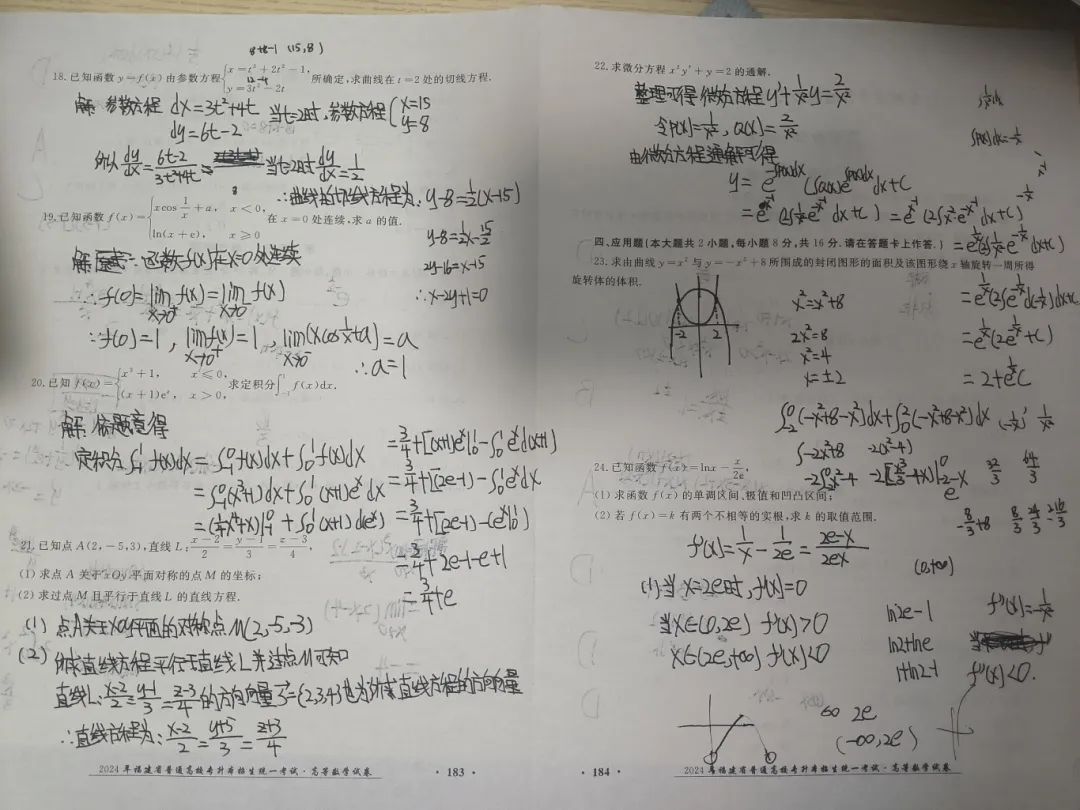 8+8-1 (15,8)
18.已知函数 y=f(x) 由参数方程{x=t³+2t²-1, y=3t²-2t 所确定,求曲线在 t=2 处的切线方程.
12-4
解: 参数方程 dx=3t²+4t 当t=2时,参数方程{x=15 y=8
dy=6t-2
所以 dy/dx=(6t-2)/(3t²+4t) 当t=2时 dy/dx=1/2
8
∴曲线的切线方程为: y-8=1/2(x-15)
19.已知函数 f(x)={xcos 1/x +a, x<0, ln(x+e), x≥0 在 x=0 处连续,求 a 的值.
y-8=1/2x-15/2
解: ∵函数f(x)在x=0处连续
2y-16=x-15
∴f(0)=lim x→0⁺ f(x)=lim x→0⁻ f(x)
∴x-2y+1=0
∵f(0)=1, lim x→0⁺ f(x)=1, lim x→0⁻ (xcos 1/x+a)=a
∴a=1
20.已知 f(x)={x³+1, x≤0, (x+1)eˣ, x>0, 求定积分∫₋₁¹ f(x)dx.
解: 依题意得
定积分∫₋₁¹ f(x)dx=∫₋₁⁰ f(x)dx+∫₀¹ f(x)dx
=∫₋₁⁰(x³+1)dx+∫₀¹(x+1)eˣdx
=(1/4x⁴+x)|₋₁⁰+∫₀¹(x+1)d(eˣ)
=3/4+[(x+1)eˣ]|₀¹-∫₀¹eˣd(x+1)
=3/4+[2e-1)-∫₀¹eˣdx
=3/4+[2e-1)-(eˣ|₀¹)
=3/4+2e-1-e+1
=3/4+e
21.已知点 A(2,-5,3),直线 L:(x-2)/2=(y-1)/3=(z-3)/4,
(1) 求点 A 关于 xOy 平面对称的点 M 的坐标;
(2) 求过点 M 且平行于直线 L 的直线方程.
(1) 点A关于xoy平面的对称点M(2,-5,-3)
(2) 所求直线方程平行于直线L并过点M可知
直线L:(x-2)/2=(y-1)/3=(z-3)/4的方向向量s=(2,3,4)也为所求直线方程的方向向量
∴直线方程为:(x-2)/2=(y+5)/3=(z+3)/4
2024年福建省普通高校专升本招生统一考试·高等数学试卷 ·183·
22.求微分方程 x²y′+y=2 的通解.
整理可得微分方程y′+1/x²y=2/x²
令P(x)=1/x², Q(x)=2/x²
由微分方程通解可得
∫1/x²dx
∫p(x)dx=-1/x
四、应用题(本大题共 2 小题,每小题 8 分,共 16 分.请在答题卡上作答.)
23.求由曲线 y=x² 与 y=-x²+8 所围成的封闭图形的面积及该图形绕 x 轴旋转一周所得
旋转体的体积.
-2 2
x²=x²+8
2x²=8
x²=4
x=±2
=2+e^(1/x)C
∫₋₂⁰(-x²+8-x²)dx+∫₀²(-x²+8-x²)dx
∫-2x²+8 -2(x²-4)
24.已知函数 f(x)=lnx-x/2e,
(1) 求函数 f(x) 的单调区间、极值和凹凸区间;
(2) 若 f(x)=k 有两个不相等的实根,求 k 的取值范围.
32/3 64/3
-8/3+8
f′(x)=1/x-1/2e=(2e-x)/2ex
(0,+∞)
(1)当x=2e时,f′(x)=0
当x∈(0,2e) f′(x)>0
x∈(2e,+∞) f′(x)<0
ln2e-1
ln2+lne
1+ln2-1
f″(x)=-1/x²
f″(x)<0.
2e
(-∞,2e)
·184· 2024年福建省普通高校专升本招生统一考试·高等数学试卷